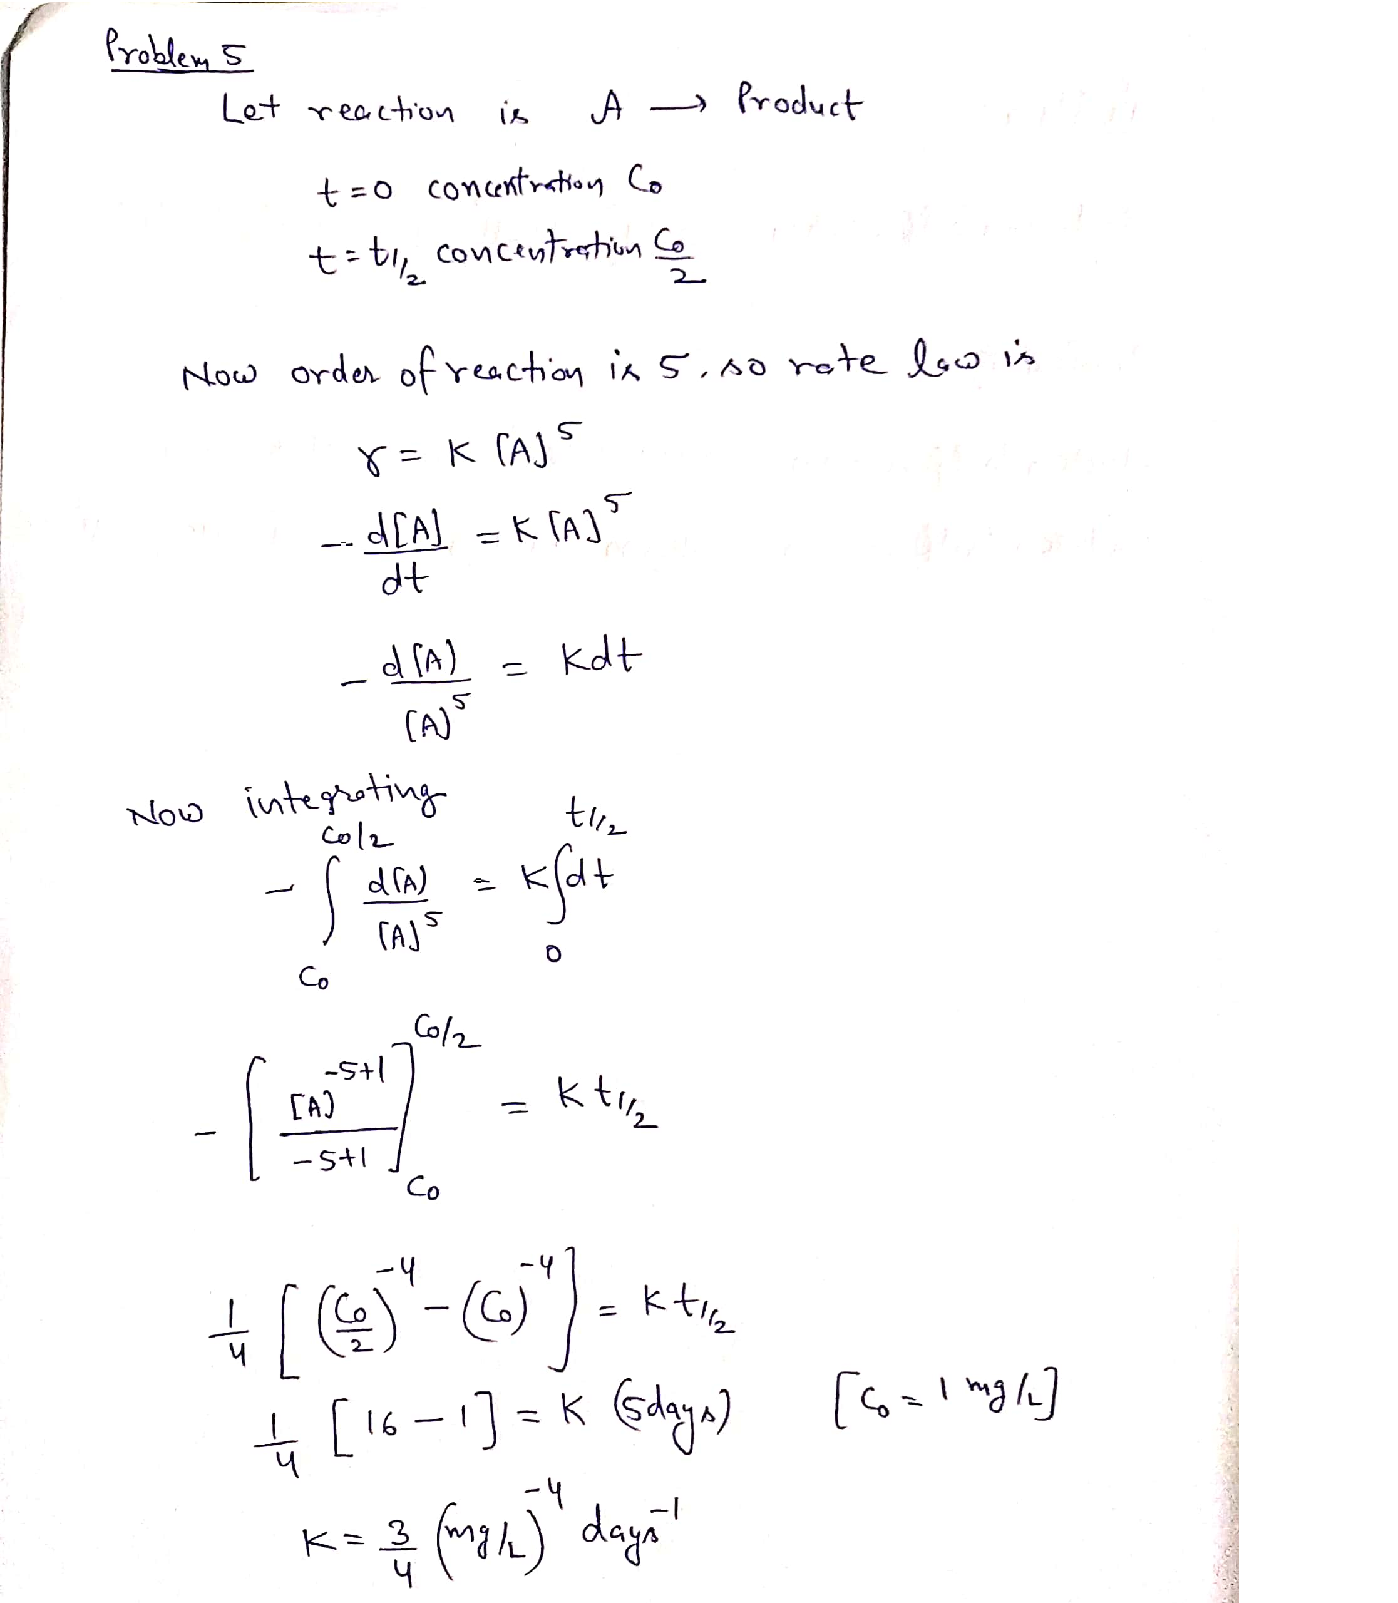 Problem 5
Let reaction is A → Product
t=0 concentration C₀
t = t₁/₂ concentration C₀/2
Now order of reaction is 5, so rate law is
r = K [A]⁵
- d[A]/dt = K [A]⁵
- d[A]/[A]⁵ = Kdt
Now integrating
- ∫_{C₀}^{C₀/2} d[A]/[A]⁵ = K ∫_{0}^{t₁/₂} dt
- [ [A]^{-5+1} / -5+1 ]_{C₀}^{C₀/2} = K t₁/₂
1/4 [ (C₀/2)⁻⁴ - (C₀)⁻⁴ ] = K t₁/₂
1/4 [16 - 1] = K (5days) [C₀ = 1 mg/L]
K = 3/4 (mg/L)⁻⁴ days⁻¹